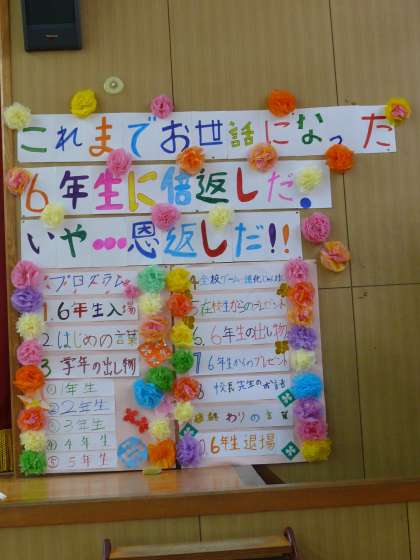 これまでお世話になった
6年生に倍返しだ。
いや…恩返しだ!!
プログラム
1.6年生入場
2 はじめの言葉
3 学年の出し物
①1年生
②2年生
③3年生
④4年生
⑤5年生
4 全校ゲーム・進化じゃんけん
5 在校生からのプレゼント
6.6年生の出し物
7 6年生からのプレゼント
8 校長先生のお話
終わりの言葉
6年生退場